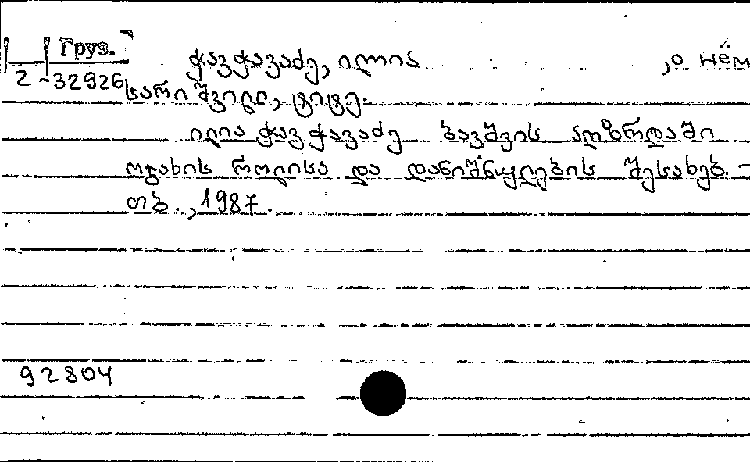 Груз.
ჭავჭავაძე, ილია , о нём
2-32926
ხარიშვილი, ტიტე.
ილია ჭავჭავაძე ბავშვის აღზრდაში
ოჯახის როლისა და დანიშნულების შესახებ -
თბ., 1987.
92804